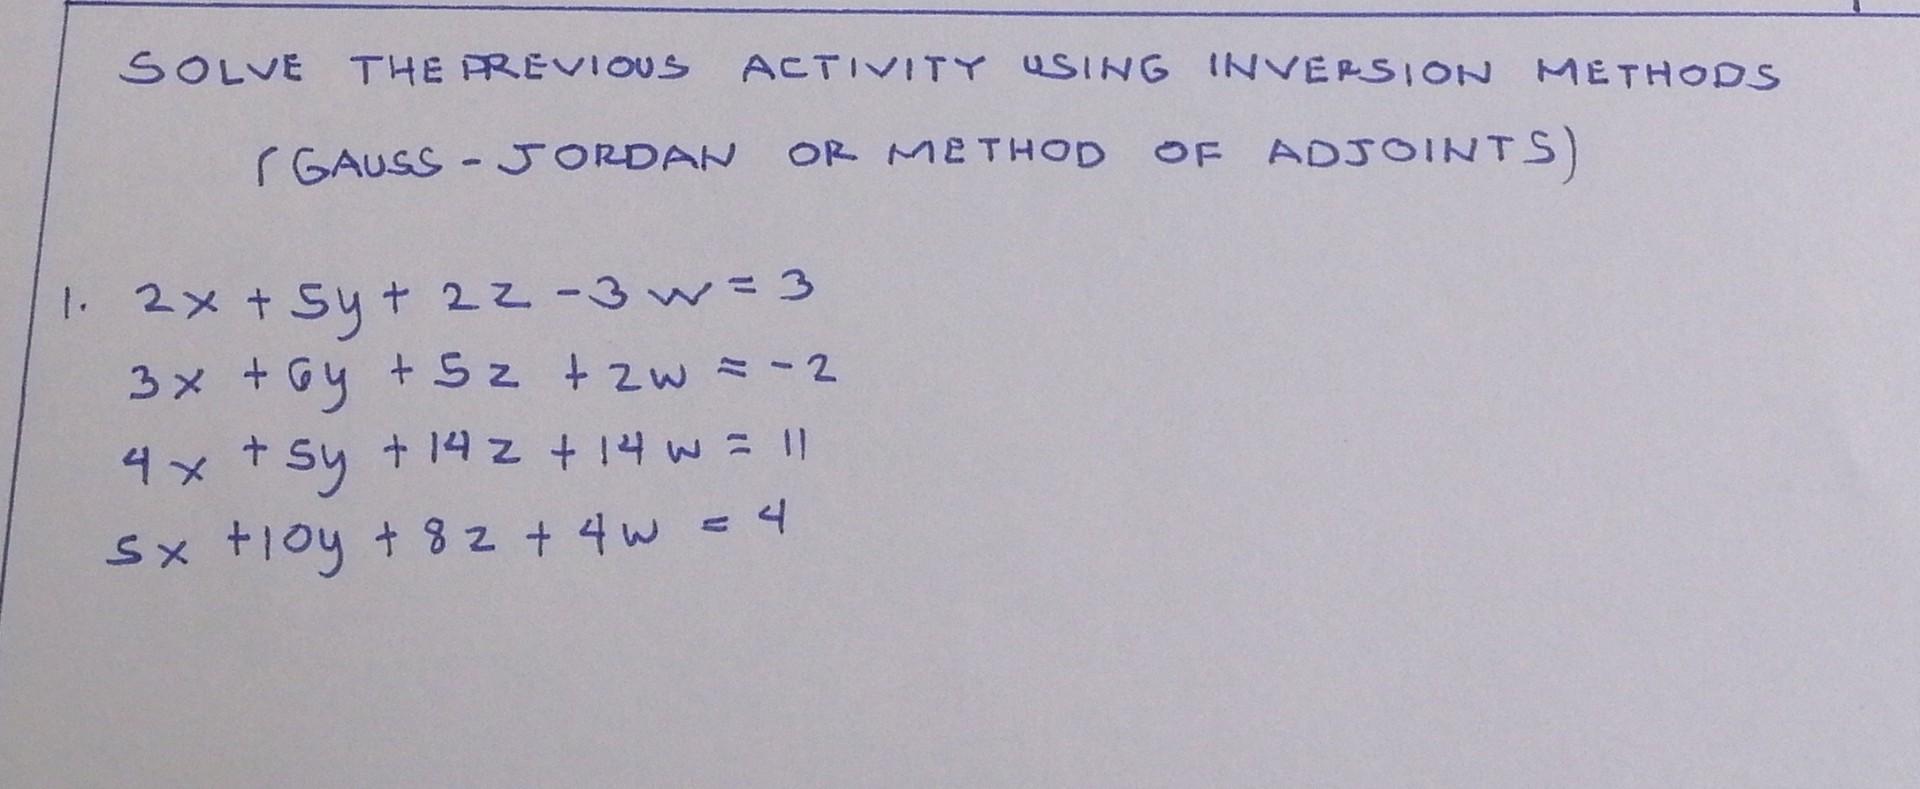 SOLVE THE PREVIOUS ACTIVITY USING INVERSION METHODS
(GAUSS-JORDAN OR METHOD OF ADJOINTS)
1. 2x + 5y + 2z - 3w = 3
3x + 6y + 5z + 2w = -2
4x + 5y + 14z + 14w = 11
5x + 10y + 8z + 4w = 4